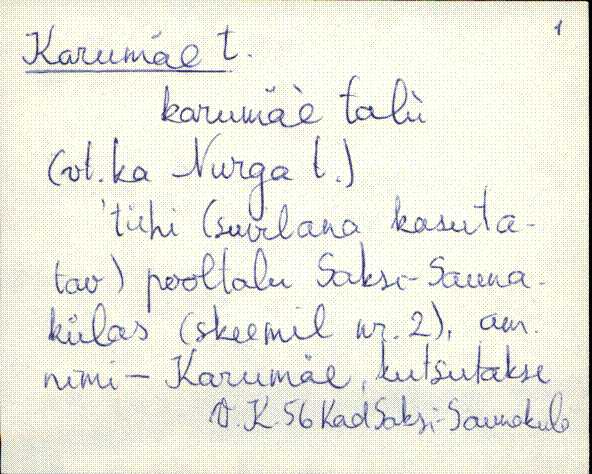 1
Karumäe t.
karumäe talu
(vt. ka Nurga t.)
'tühi (suvilana kasuta-
tav) pooltalu Saksi-Sauna-
külas (skeemil nr. 2), am.
nimi - Karumäe, kutsutakse
V. K. 56 Kad Saksi-Saunaküla